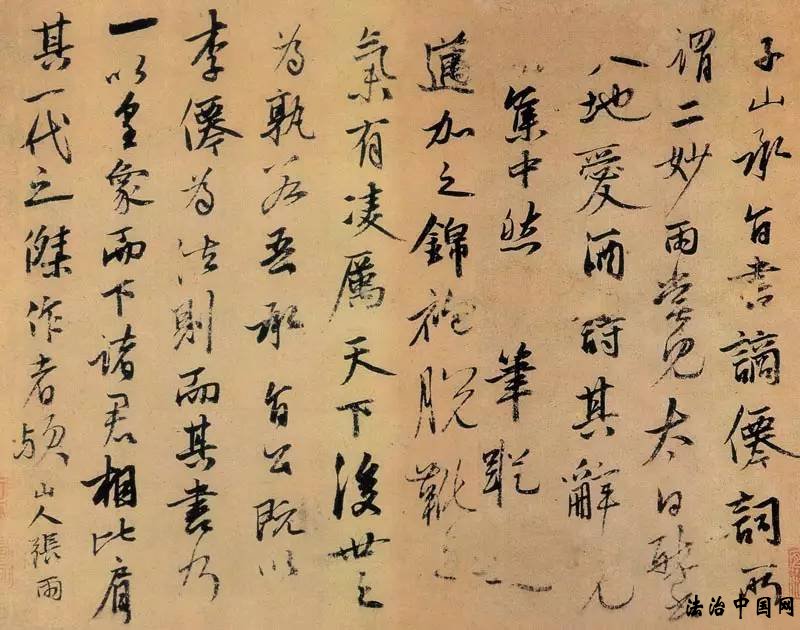 子山承旨書謫僊詞所
謂二妙雨嘗見太白醉
地愛酒詩其辭見
集中然筆蹤
加之錦袍脫靴之
氣有凌厲天下後世之
為孰若吾承旨公既以
李僊為法則而其書乃
一以皇象而下諸君相比肩
其一代之傑作者歟山人張雨
法治中国网